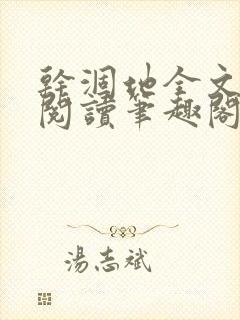 幹涸地全文
閱讀筆趣閣
湯志斌